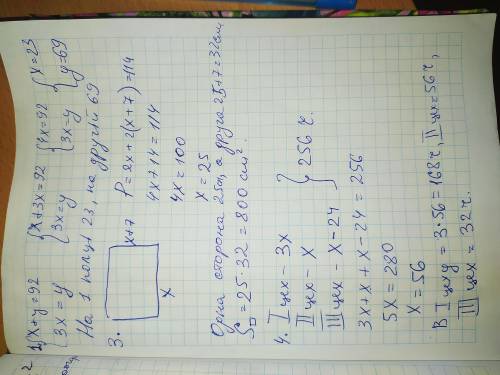 1) {x+y=92 {x+3x=92 {4x=92 {x=23
{3x=y {3x=y {3x=y {y=69
На 1 полці 23, на другій 69
3. x+7 P=2x+2(x+7)=114
x 4x+14=114
4x=100
x=25
Одна сторона 25см, а друга 25+7=32см
S□=25·32=800 см²
4. I цех – 3x
II цех – x } 256 ч.
III цех – x–24
3x+x+x–24=256
5x=280
x=56
В I цеху = 3·56=168 ч, II цех=56 ч,
III цех = 32 ч.